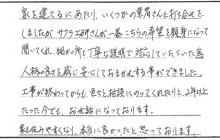 家を建てるにあたり、いくつかの業者さんと打ち合せを
しましたが サクラ研さんが一番こちらの希望を親身になって
聞いてくれ、細かい所も丁寧な説明で対応していただいた為
人柄の良さを感じ安心しておまかせする事ができました。
工事が終わってからも色々と相談にのってくれたりと、2年以上
たった今でも、お世話になっております。
家も住みやすくなり、本当に良かったと思っております。